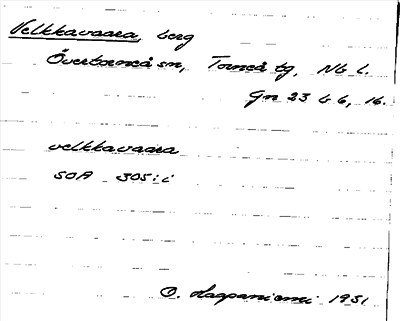 Velkkavaara, berg
Övertorneå sn, Torneå tg, Nb l.
Gn 23 b 6, 16.
velkkavaara
SOA 305:i
O. Haapaniemi 1931